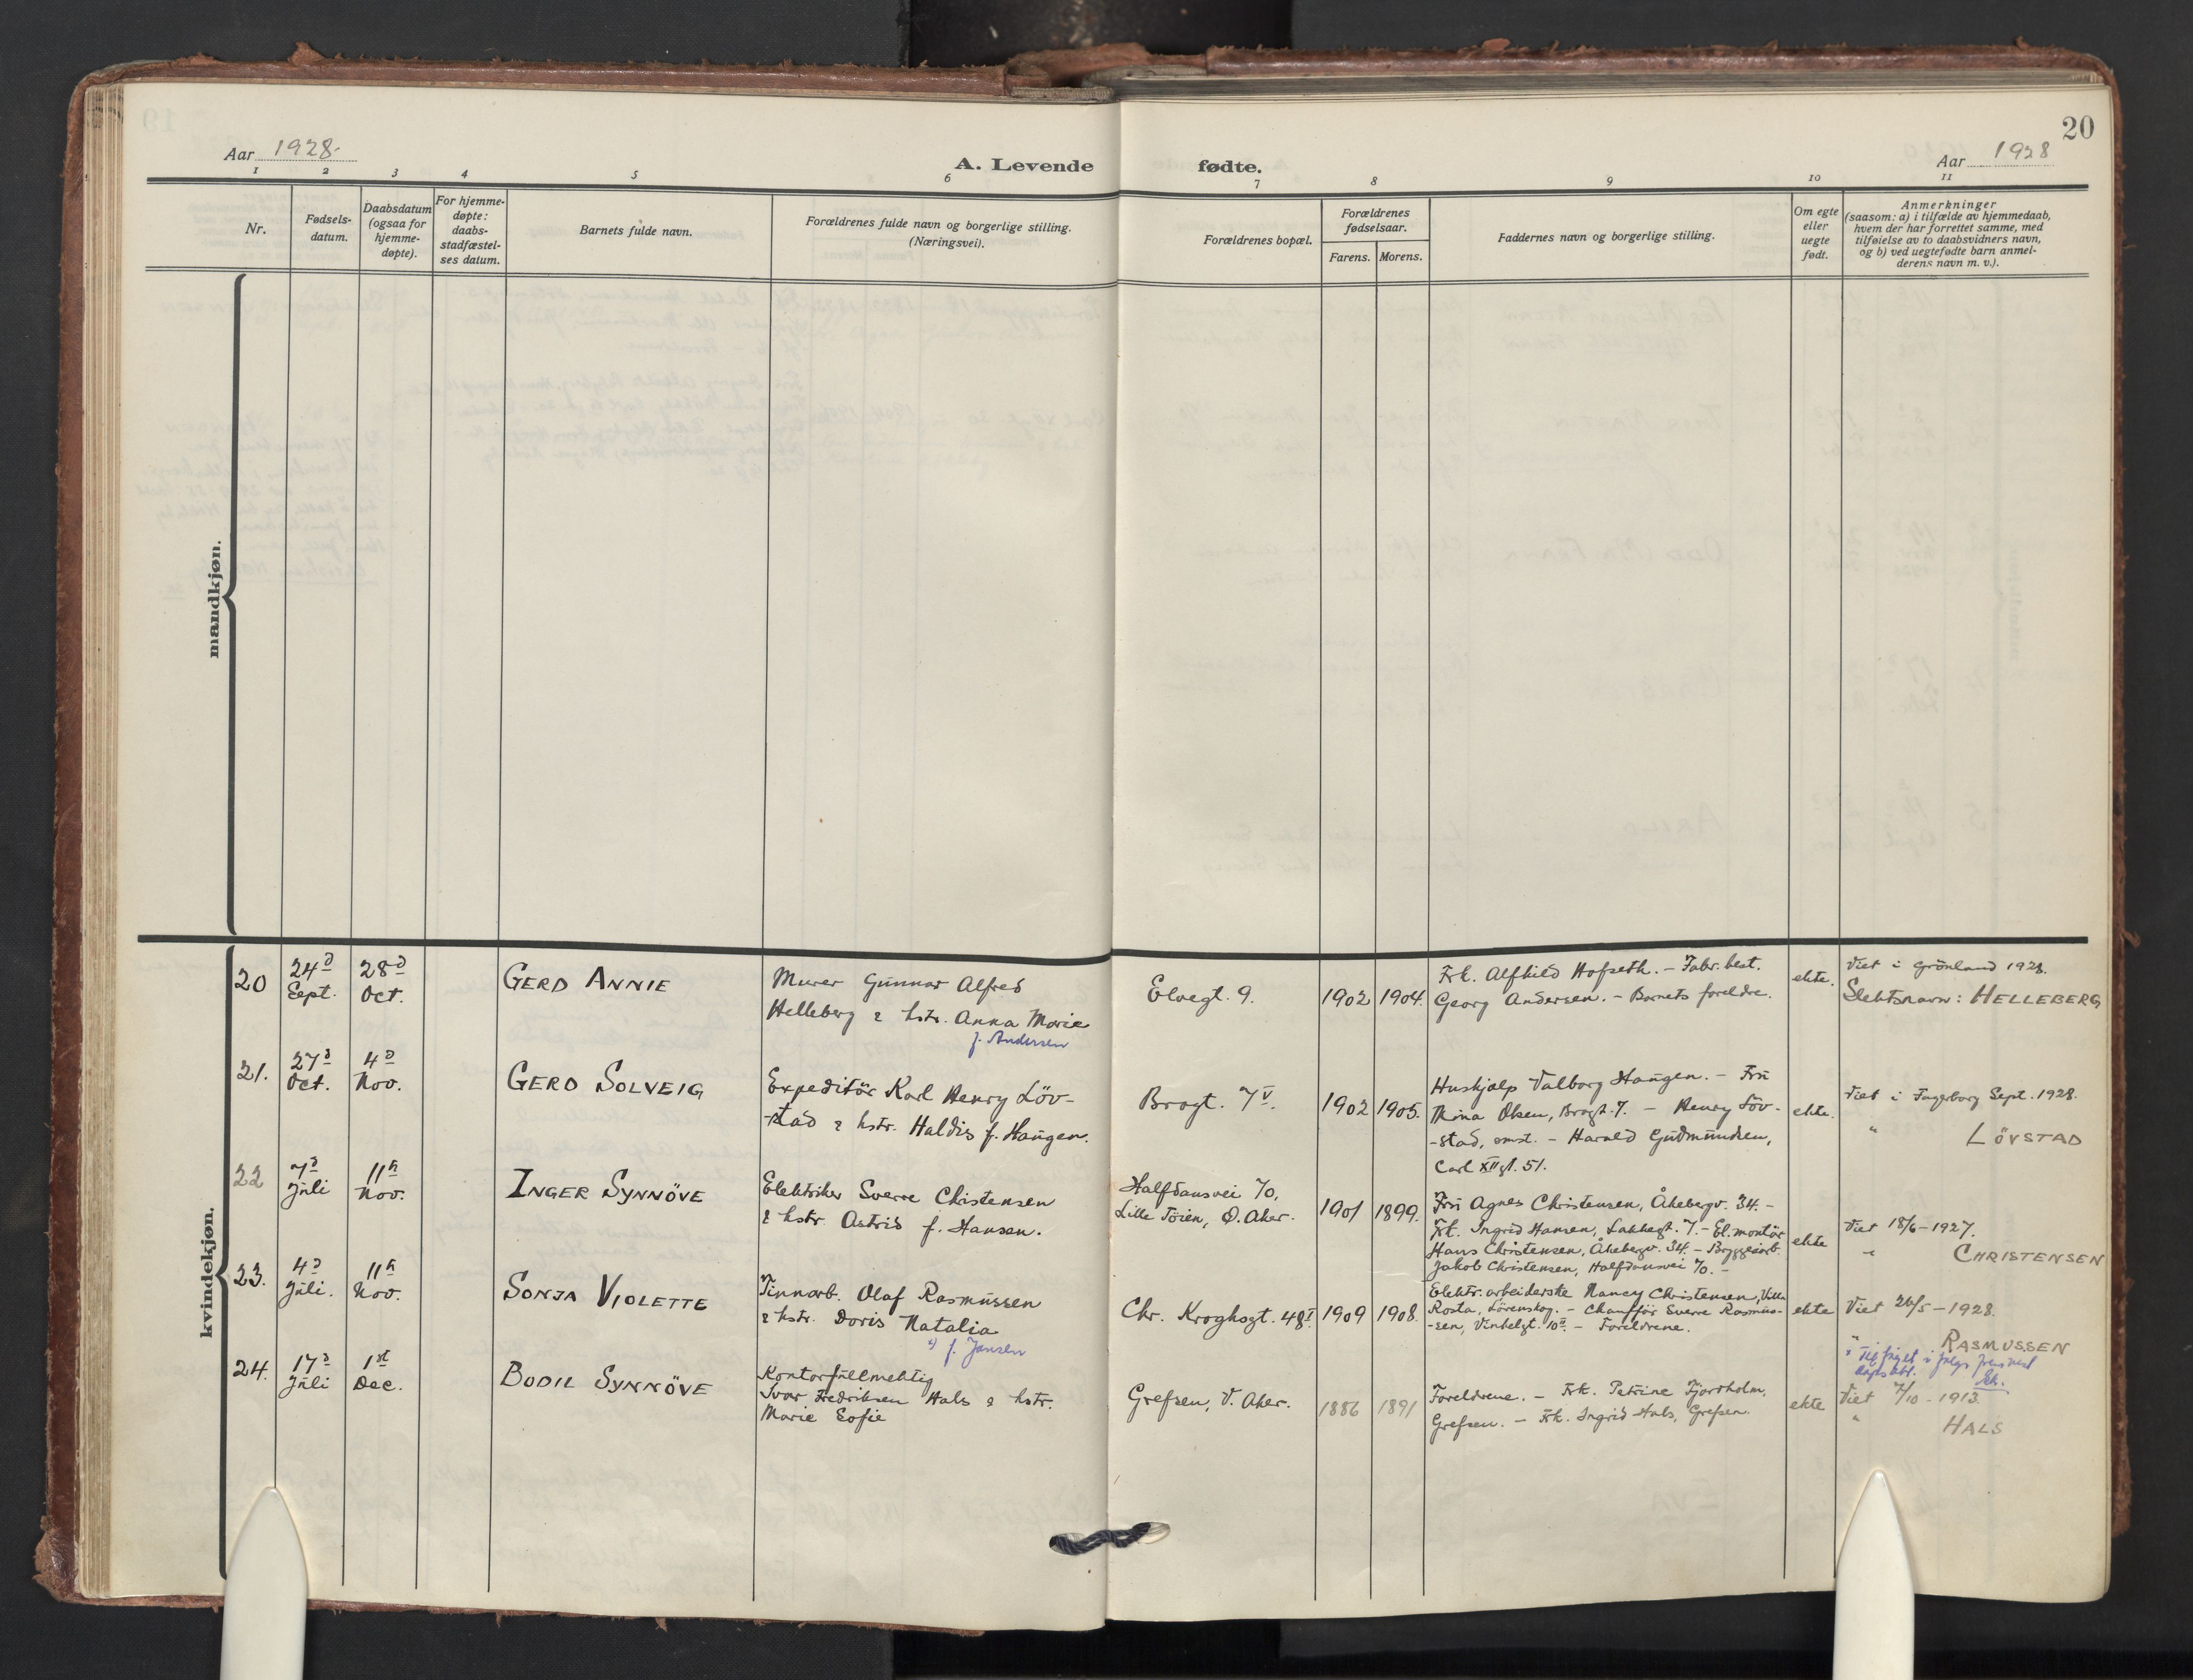 20
Aar 1928.
A. Levende
fødte.
Aar 1928
1 2 3 4 5 6 7 8 9 10 11
Nr.
Fødsels-
datum.
Daabsdatum
(ogsaa for
hjemme-
døpte).
For hjemme-
døpte:
daabs-
stadfæstel-
ses datum.
Barnets fulde navn.
Forældrenes fulde navn og borgerlige stilling.
(Næringsvei).
Forældrenes bopæl.
Forældrenes
fødselsaar.
Farens. Morens.
Faddernes navn og borgerlige stilling.
Om egte
eller
uegte
født.
Anmerkninger
(saasom: a) i tilfælde av hjemmedaab,
hvem der har forrettet samme, med
tilføielse av to daabsvidners navn,
og b) ved uegtefødte barn anmel-
derens navn m. v.).
mandkjøn.
kvindekjøn.
20
24d
Sept.
28d
Oct.
GERD ANNIE
Murer Gunnar Alfred
Helleberg & hstr. Anna Marie
f. Andersen
Elvegt. 9.
1902 1904.
Frk. Alfhild Hofseth. - Fabr. best.
Georg Andersen. - Barnets foreldre.
ekte.
Viet i Grönland 1928.
Slektsnavn: HELLEBERG
21.
27d
Oct.
4d
Nov.
GERD SOLVEIG
Expeditör Karl Henry Löv-
-stad & hstr. Haldis f. Haugen.
Brogt. 7V.
1902 1905.
Huskjelp Valborg Haugen. - Fru
Mina Olsen, Brogt. 7. - Henry Löv-
-stad, smst. - Harald Gudmundsen,
Carl XII gt. 51.
ekte.
Viet i Fagerborg Sept. 1928.
" LÖVSTAD
22
7d
Juli
11te
Nov.
INGER SYNNÖVE
Elektriker Sverre Christensen
& hstr. Astrid f. Hansen.
Halfdansvei 70,
Lille Töien, Ö. Aker.
1901 1899.
Fru Agnes Christensen, Åkebergv. 34. -
Frk. Ingrid Hansen, Lakkegt. 7. - El. montör
Hans Christensen, Åkebergv. 34. - Bryggeiarb.
Jakob Christensen, Halfdansvei 70. -
ekte
Viet 18/6 - 1927.
" CHRISTENSEN
23.
4d
Juli.
11te
Nov.
SONJA VIOLETTE
Tinnarb. Olaf Rasmussen
& hstr. Doris Natalia
f. Jansen
Chr. Kroghsgt. 48I
1909 1908.
Elektr. arbeiderske Nancy Christensen, Villa
Rosta, Lörenskog. - Chaufför Sverre Rasmus-
-sen, Vinkelgt. 10II. - Foreldrene.
ekte
Viet 26/5 - 1928.
" RASMUSSEN
24.
17d
Juli
1st
Dec.
BODIL SYNNÖVE
Kontorfullmektig
Ivar Fredriksen Hals & hstr.
Marie Sofie
Grefsen, V. Aker.
1886 1891
Foreldrene. - Frk. Petrine Fjortholm,
Grefsen. - Frk. Ingrid Hals, Grefsen.
ekte
Viet 7/10 - 1913.
" HALS